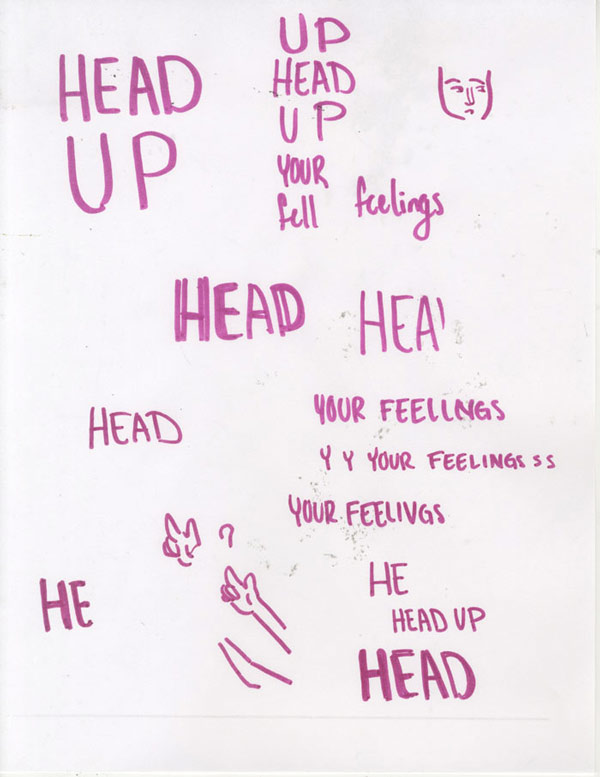 HEAD
UP
UP
HEAD
UP
YOUR
fell
feelings
HEAD
HEA
HEAD
YOUR FEELLNGS
Y Y YOUR FEELINGS S S
YOUR FEELIVGS
?
HE
HE
HEAD UP
HEAD